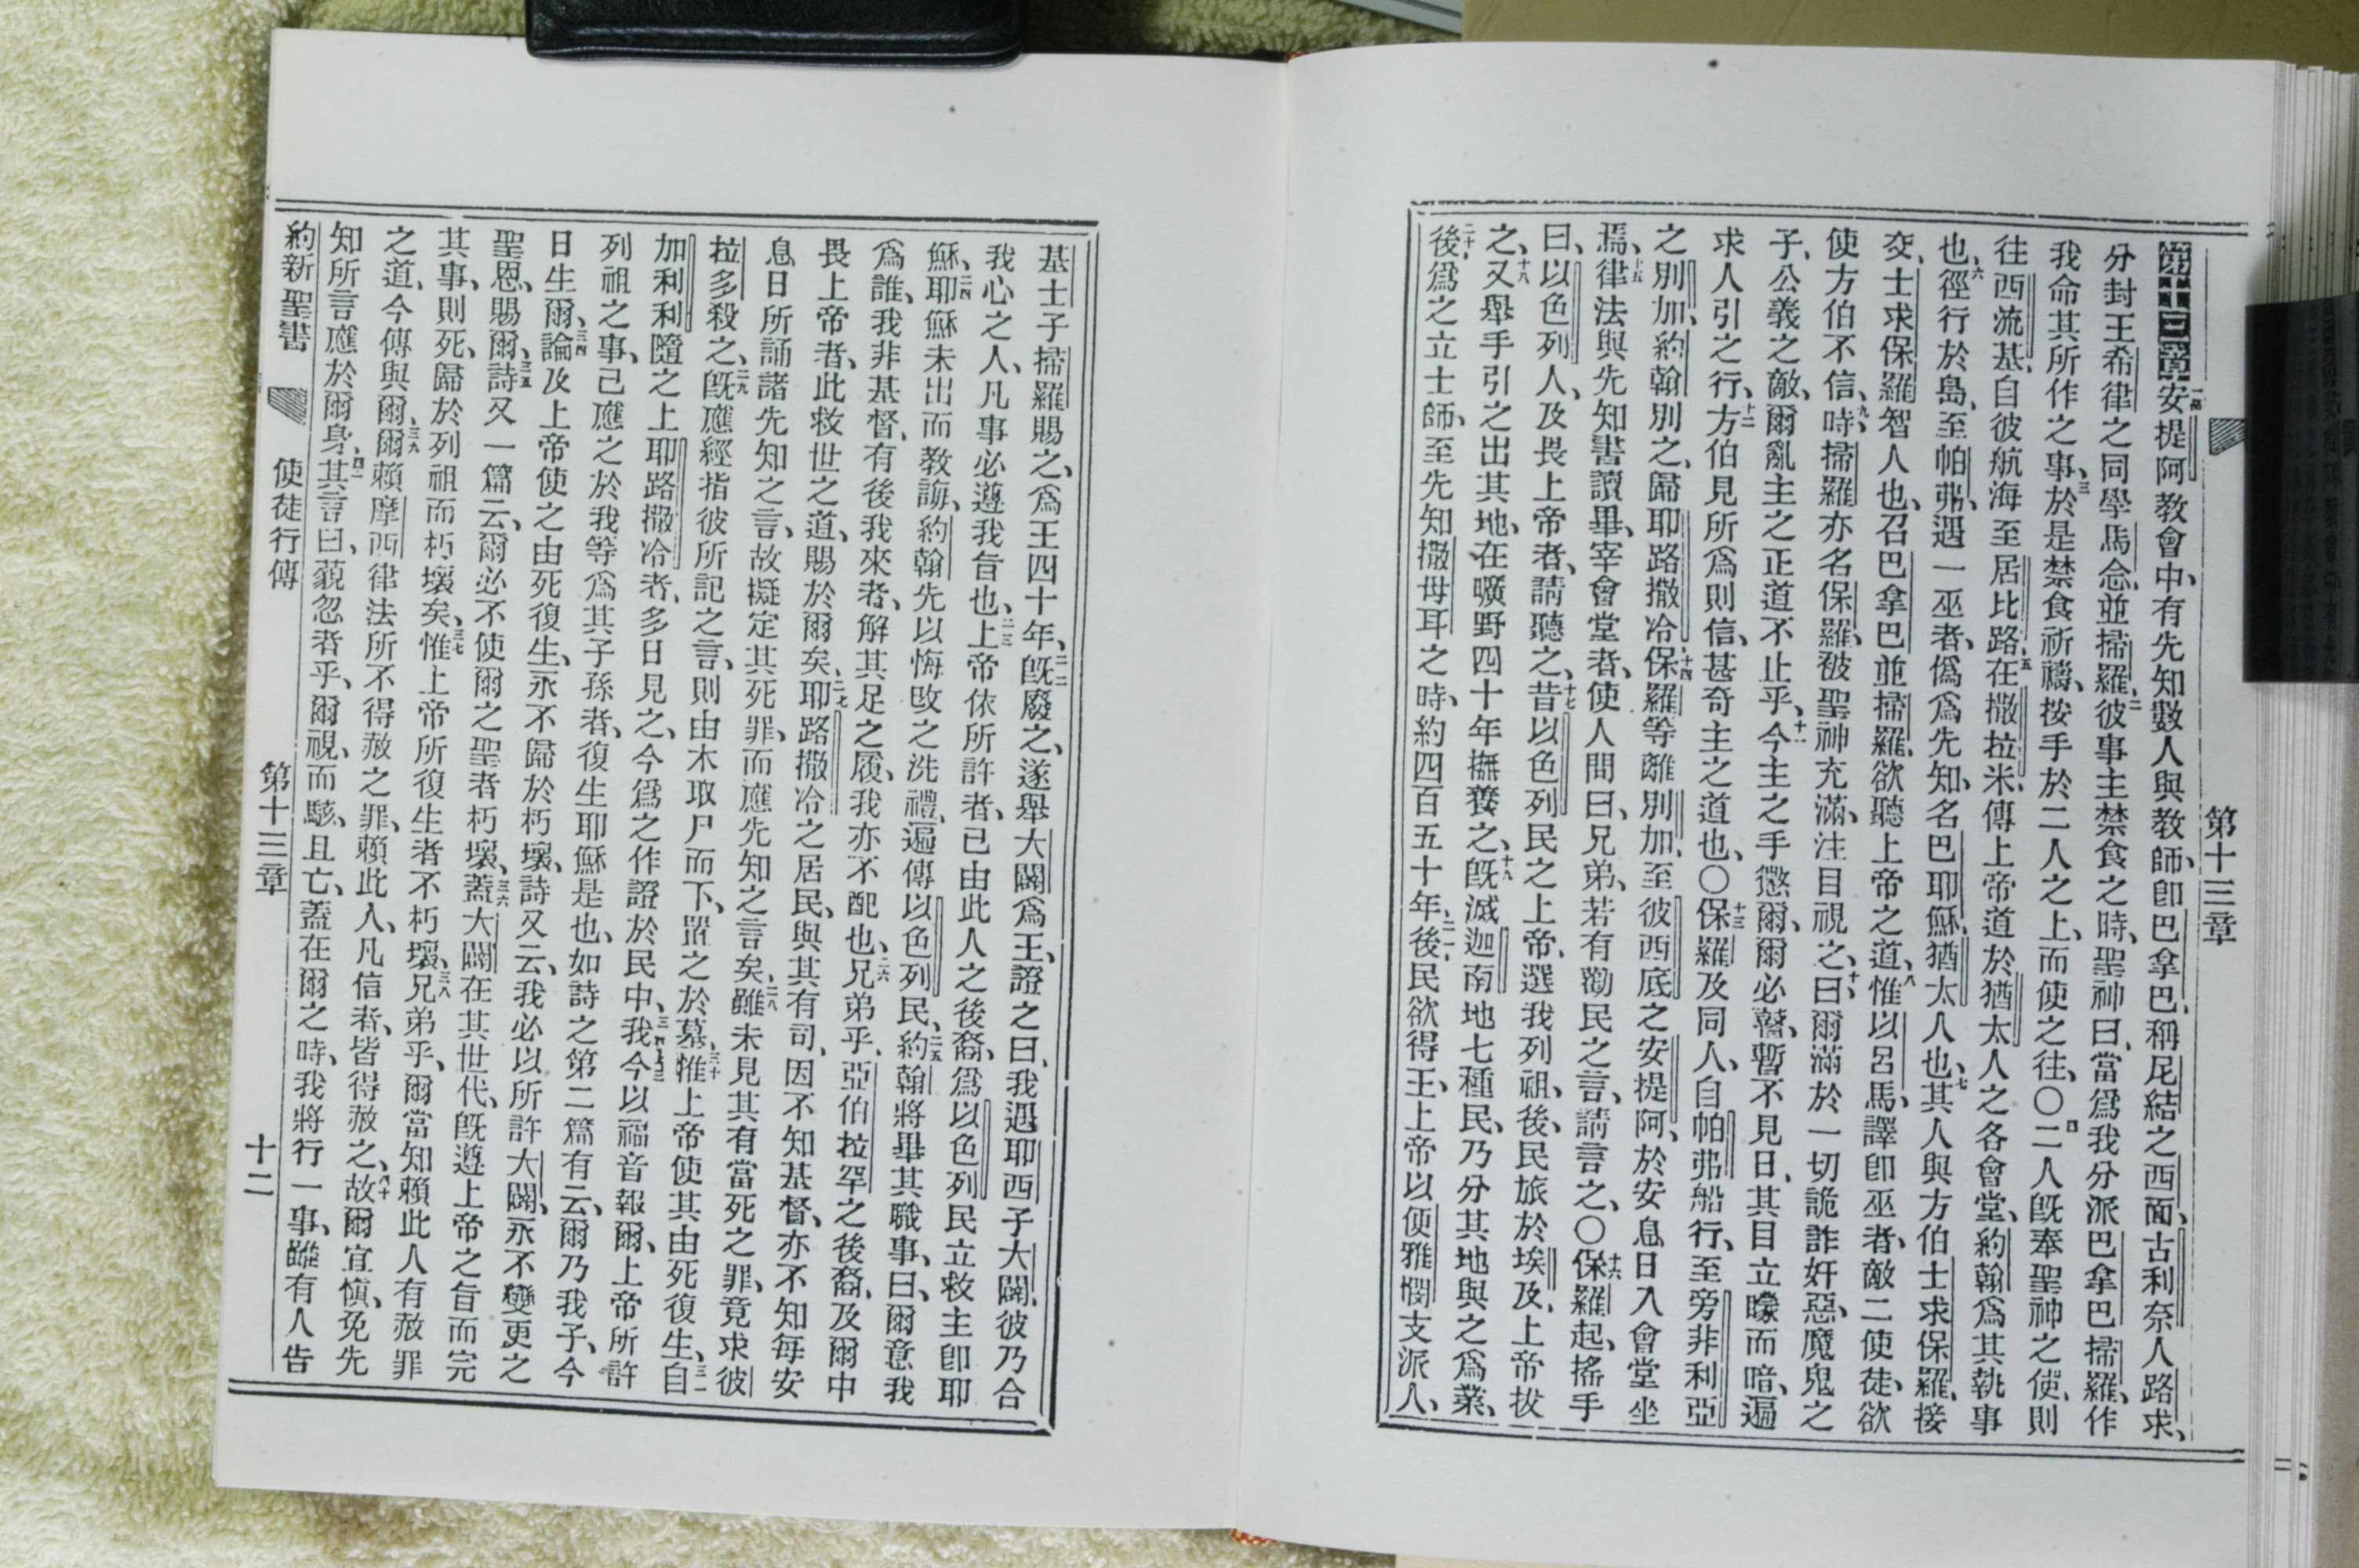 第十三章安提阿教會中、有先知數人與教師、卽巴拿巴、稱尼結之西面、古利奈人路求、
分封王希律之同學馬念、並掃羅、彼事主禁食之時、聖神曰、當爲我分派巴拿巴掃羅、作
我命其所作之事、三於是禁食祈禱、按手於二人之上、而使之往、〇四二人旣奉聖神之使、則
往西流基、自彼航海至居比路、五在撒拉米、傳上帝道於猶太人之各會堂、約翰爲其執事
也、六徑行於島、至帕弗、遇一巫者、僞爲先知、名巴耶穌、猶太人也、七其人與方伯士求保羅、接
交、士求保羅智人也、召巴拿巴並掃羅、欲聽上帝之道、八惟以呂馬、譯卽巫者、敵二使徒、欲
使方伯不信、九時掃羅亦名保羅、被聖神充滿、注目視之、十曰、爾滿於一切詭詐奸惡、魔鬼之
子、公義之敵、爾亂主之正道不止乎、十一今主之手懲爾、爾必瞽、暫不見日、其目立矇而暗、遍
求人引之行、十二方伯見所爲則信、甚奇主之道也、〇十三保羅及同人、自帕弗船行、至旁非利亞
之別加、約翰別之、歸耶路撒冷、十四保羅等離別加、至彼西底之安提阿、於安息日入會堂坐
焉、十五律法與先知書讀畢、宰會堂者、使人問曰、兄弟、若有勸民之言、請言之、〇十六保羅起、搖手
曰、以色列人、及畏上帝者、請聽之、十七昔以色列民之上帝、選我列祖、後、民旅於埃及、上帝拔
之、十八又舉手引之出其地、在曠野四十年撫養之、十九旣滅迦南地七種民、乃分其地與之爲業、
二十後爲之立士師、至先知撒母耳之時、約四百五十年、二一後、民欲得王、上帝以便雅憫支派人、
第十三章
基士子掃羅賜之、爲王四十年、二二旣廢之、遂舉大闢爲王、證之曰、我遇耶西子大闢、彼乃合
我心之人、凡事必遵我旨也、二三上帝依所許者、已由此人之後裔、爲以色列民立救主卽耶
穌、二四耶穌未出而敎誨、約翰先以悔改之洗禮、遍傳以色列民、二五約翰將畢其職事、曰、爾意我
爲誰、我非基督、有後我來者、解其足之履、我亦不配也、二六兄弟乎、亞伯拉罕之後裔、及爾中
畏上帝者、此救世之道、賜於爾矣、二七耶路撒冷之居民、與其有司、因不知基督、亦不知每安
息日所誦諸先知之言、故擬定其死罪、而應先知之言矣、二八雖未見其有當死之罪、竟求彼
拉多殺之、二九旣應經指彼所記之言、則由木取尸而下、置之於墓、三十惟上帝使其由死復生、三一自
加利利隨之上耶路撒冷者、多日見之、今爲之作證於民中、三二我今以福音報爾、上帝所許
列祖之事、己應之於我等爲其子孫者、復生耶穌是也、如詩之第二篇有云、爾乃我子、今
日生爾、三四論及上帝使之由死復生、永不歸於朽壞、詩又云、我必以所許大闢、永不變更之
聖恩、賜爾、三五詩又一篇云、爾必不使爾之聖者朽壞、三六蓋大闢在其世代、旣遵上帝之旨而完
其事、則死、歸於列祖而朽壞矣、三七惟上帝所復生者不朽壞、三八兄弟乎、爾當知賴此人有赦罪
之道、今傳與爾、三九爾賴摩西律法所不得赦之罪、賴此人、凡信者、皆得赦之、四十故爾宜愼、免先
知所言應於爾身、四一其言曰、藐忽者乎、爾視、而駭、且亡、蓋在爾之時、我將行一事、雖有人告
約新聖書　使徒行傳　第十三章　十二